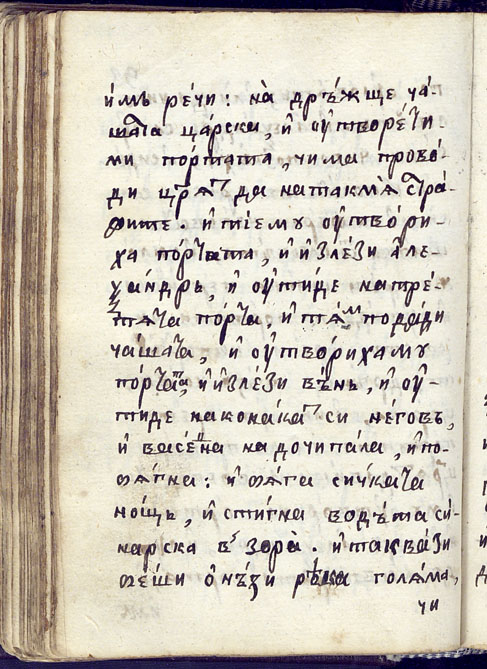 и҆мь ре́чи: на̀ дръ́жще ча́-
шата ца́рска, и҆ ѹ҆творе́ти-
ми по́ртата, чи ма прово́-
ди цр҃ѧт да натакмѧ̀ стра́-
ѹ҆тво́ри-
ха по́рtата, и҆ и҆злѣ́зи а҆ле-
ѯа́ндрь, и҆ ѹ҆ти́де на тре́-
тѧта по́рта, и҆ тѧ́м пода́ди
ча́шата, и҆ ѹ҆тво́рихамꙋ
по́ртата, и҆ и҆злѣ́зи вь́нь, и҆ ѹ҆-
тиде на кона́кат си не́говь,
и҆ васе́на на дочипала, и҆ по-
сичката
нощь, и҆ стигна водъ́та си-
нарска в зора̀. и҆ таква́зи
о҆нъ́зи рѣка голѧ́ма,
чи